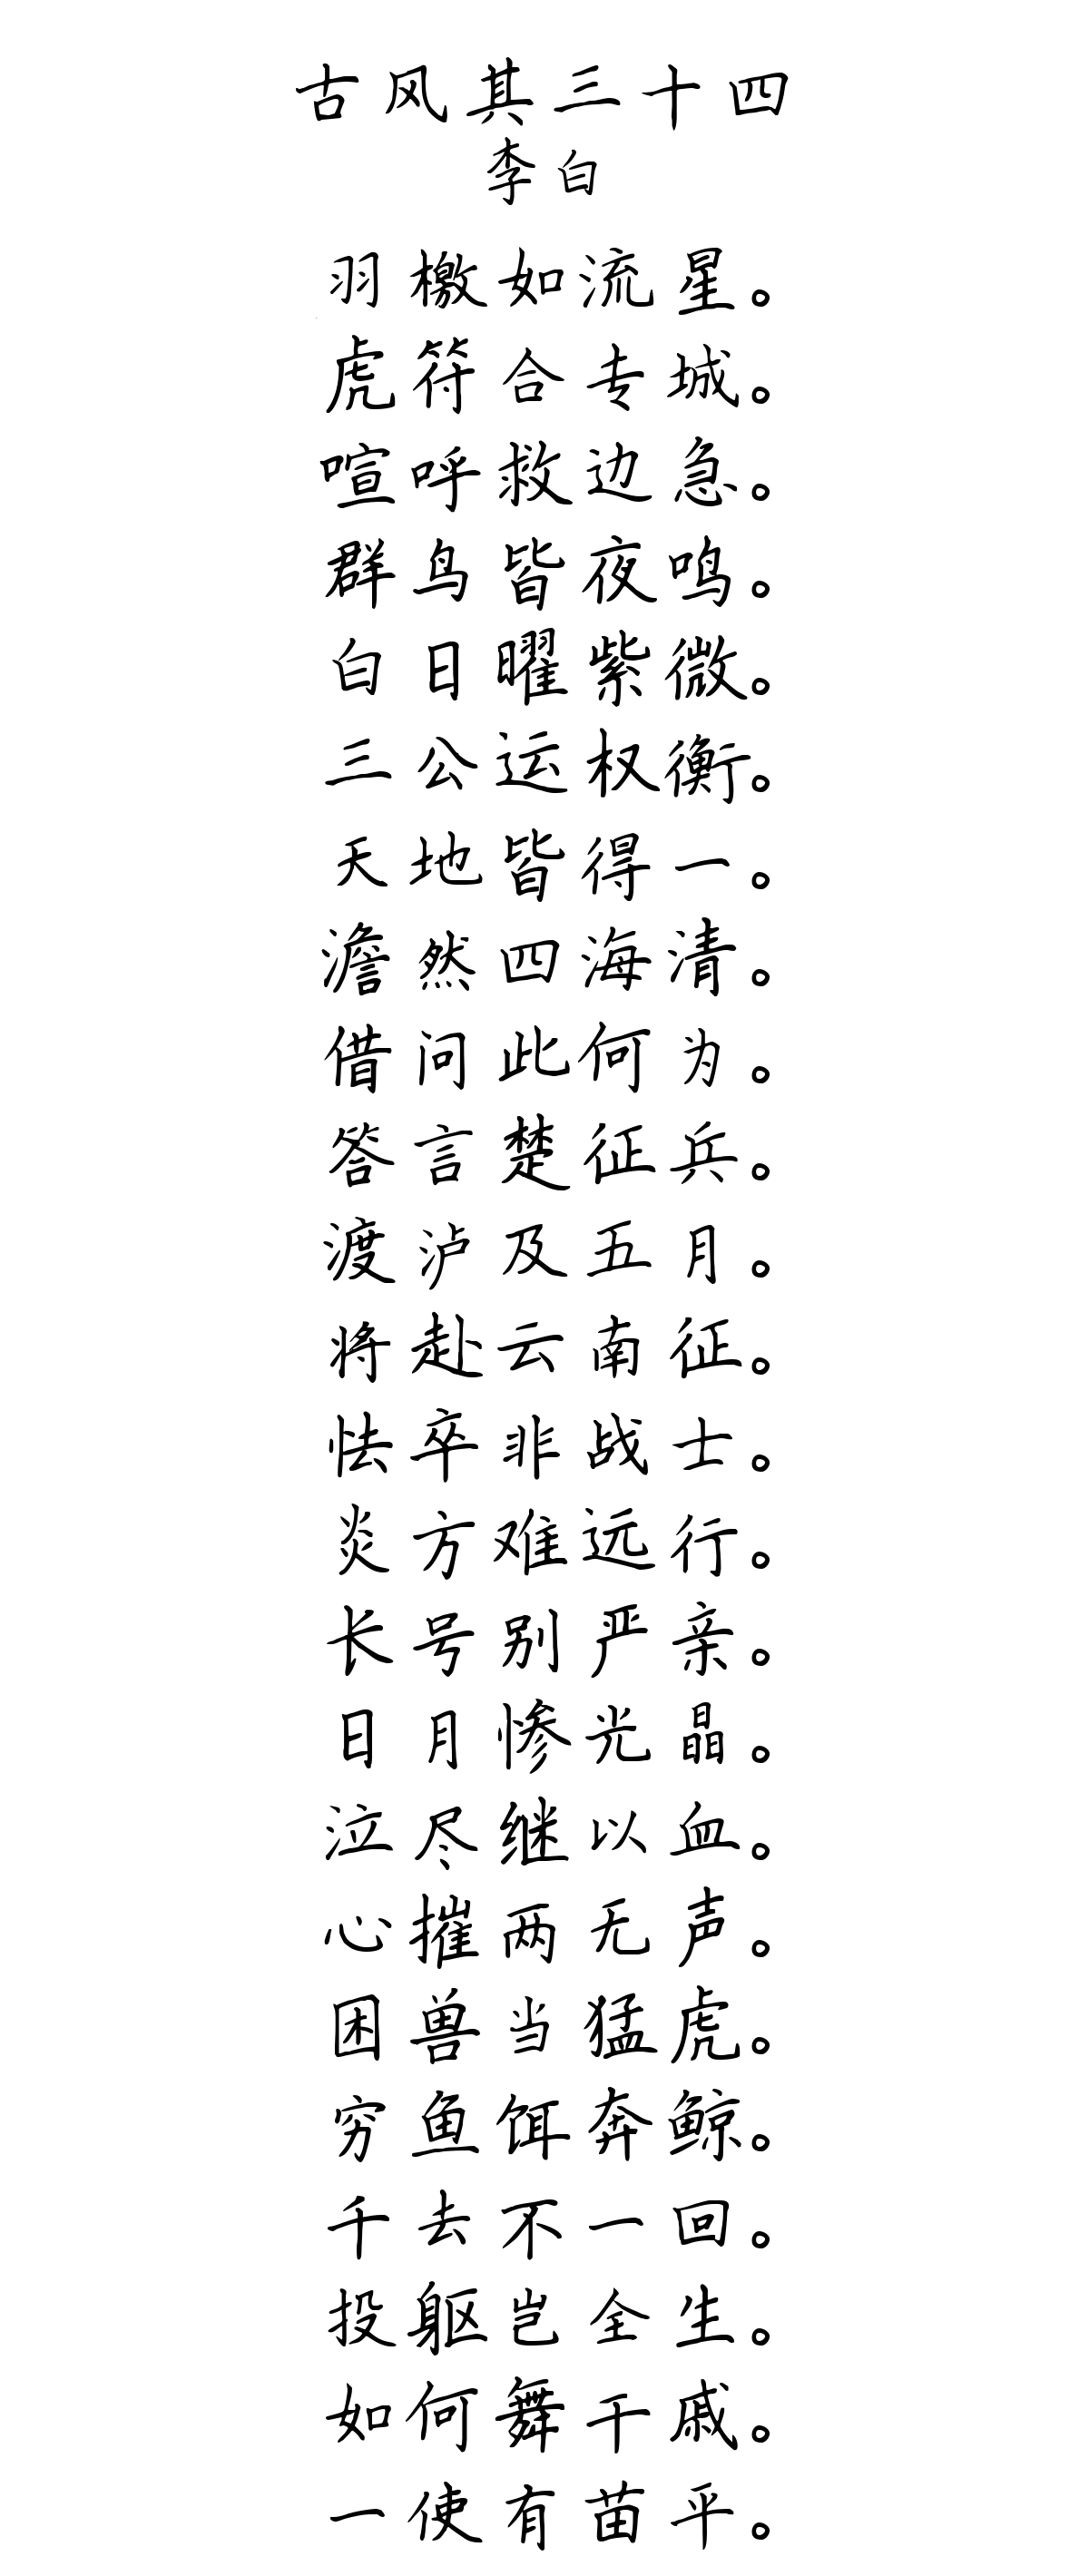 古风其三十四
李白
羽檄如流星。
虎符合专城。
喧呼救边急。
群鸟皆夜鸣。
白日曜紫微。
三公运权衡。
天地皆得一。
澹然四海清。
借问此何为。
答言楚征兵。
渡泸及五月。
将赴云南征。
怯卒非战士。
炎方难远行。
长号别严亲。
日月惨光晶。
泣尽继以血。
心摧两无声。
困兽当猛虎。
穷鱼饵奔鲸。
千去不一回。
投躯岂全生。
如何舞干戚。
一使有苗平。